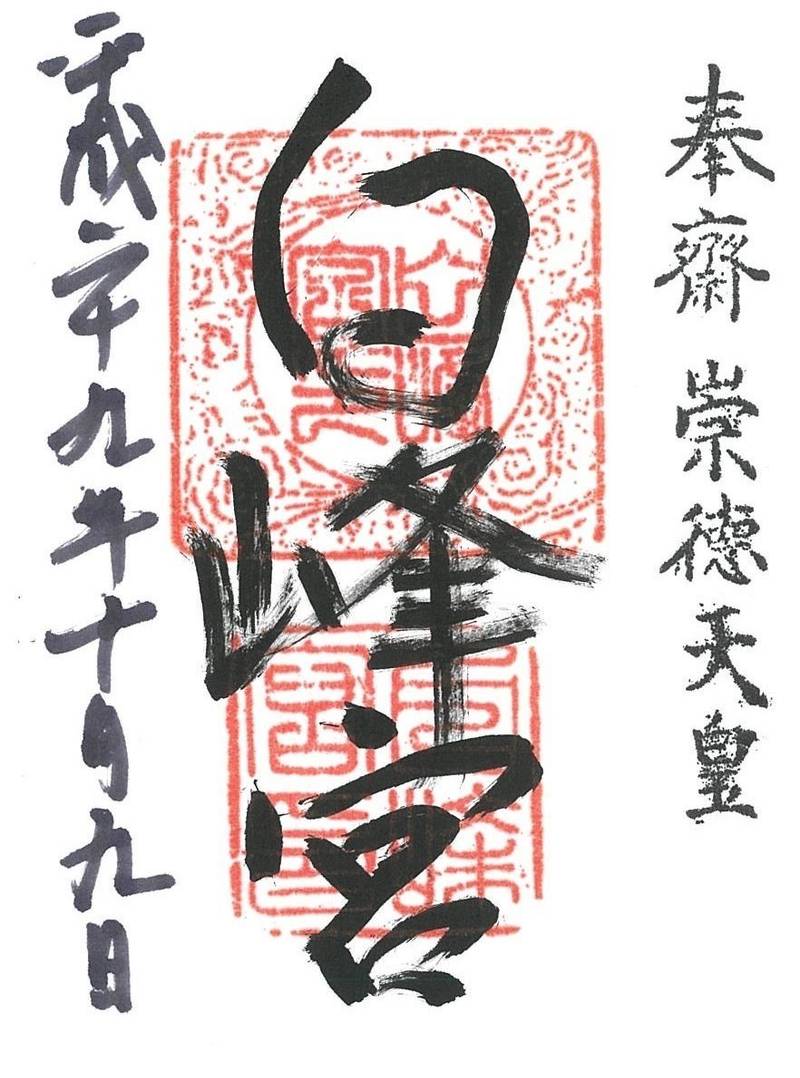 奉齋 崇德天皇
白峰宮
平成二十九年十月九日